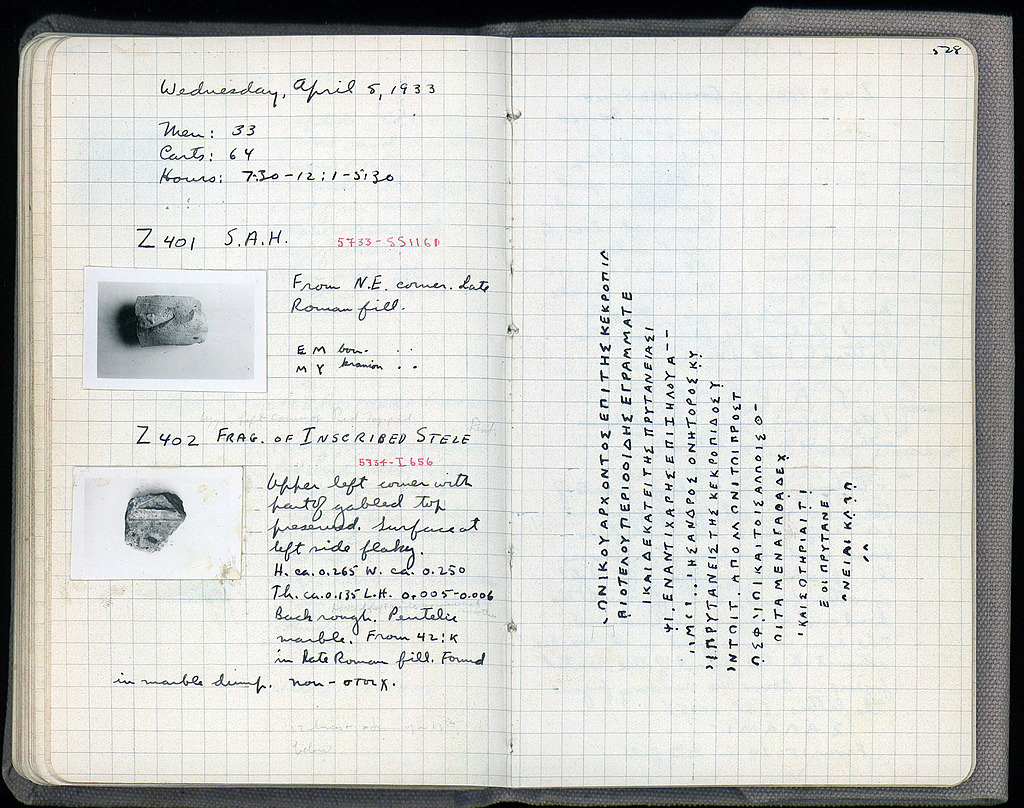 Wednesday, April 5, 1933
Men: 33
Carts: 64
Hours: 7:30-12; 1-5:30
Z 401 S.A.H. 5733-SS1160
From N.E. corner. Late
Roman fill.
E M
M Y kranion
Z 402 FRAG. OF INSCRIBED STELE
5734-I 656
Upper left corner with
part of gabled top
preserved. Surface at
left side flaky.
H. ca. 0.265 W. ca. 0.250
Th. ca. 0.135 L.H. 0.005-0.006
Back rough. Pentelic
marble. From 42:K
in late Roman fill. Found
in marble dump. non-στοιχ.
528
ΟΝΙΚΟΥΑΡΧΟΝΤΟΣΕΠΙΤΗΣΚΕΚΡΟΠΙΛ
ΡΙΟΤΕΛΟΥΠΕΡΙΘΟΙΔΗΣΕΓΡΑΜΜΑΤΕ
ΙΚΑΙΔΕΚΑΤΕΙΤΗΣΠΡΥΤΑΝΕΙΑΣΙ
ΕΝΑΝΤΙΧΑΡΗΣΕΠΙΣΗΛΟΥΑ--
ΗΣΑΝΔΡΟΣΟΝΗΤΟΡΟΣΚΥ
ΙΠΡΥΤΑΝΕΙΣΤΗΣΚΕΚΡΟΠΙΔΟΣΥ
ΑΠΟΛΛΩΝΙΤΩΙΠΡΟΣΤ
ΚΑΙΤΟΙΣΑΛΛΟΙΣΘ-
ΤΑΜΕΝΑΓΑΘΑΔΕΧ
ΚΑΙΣΩΤΗΡΙΑΙΤ
ΕΟΙΠΡΥΤΑΝΕ